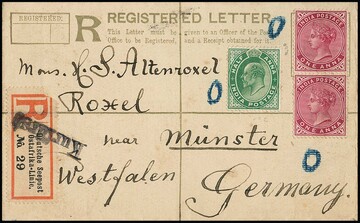 REGISTERED.
R REGISTERED LETTER.
This Letter must be given to an Officer of the Post
Office to be Registered, and a Receipt obtained for it.
INDIA POSTAGE
ONE ANNA
HALF ANNA
INDIA POSTAGE
INDIA POSTAGE
ONE ANNA
Mons. H. S. Altenroxel
Roxel
near Münster
Westfalen
Germany.
R
Deutsche Seepost
Ostafrika-Linie.
№ 29